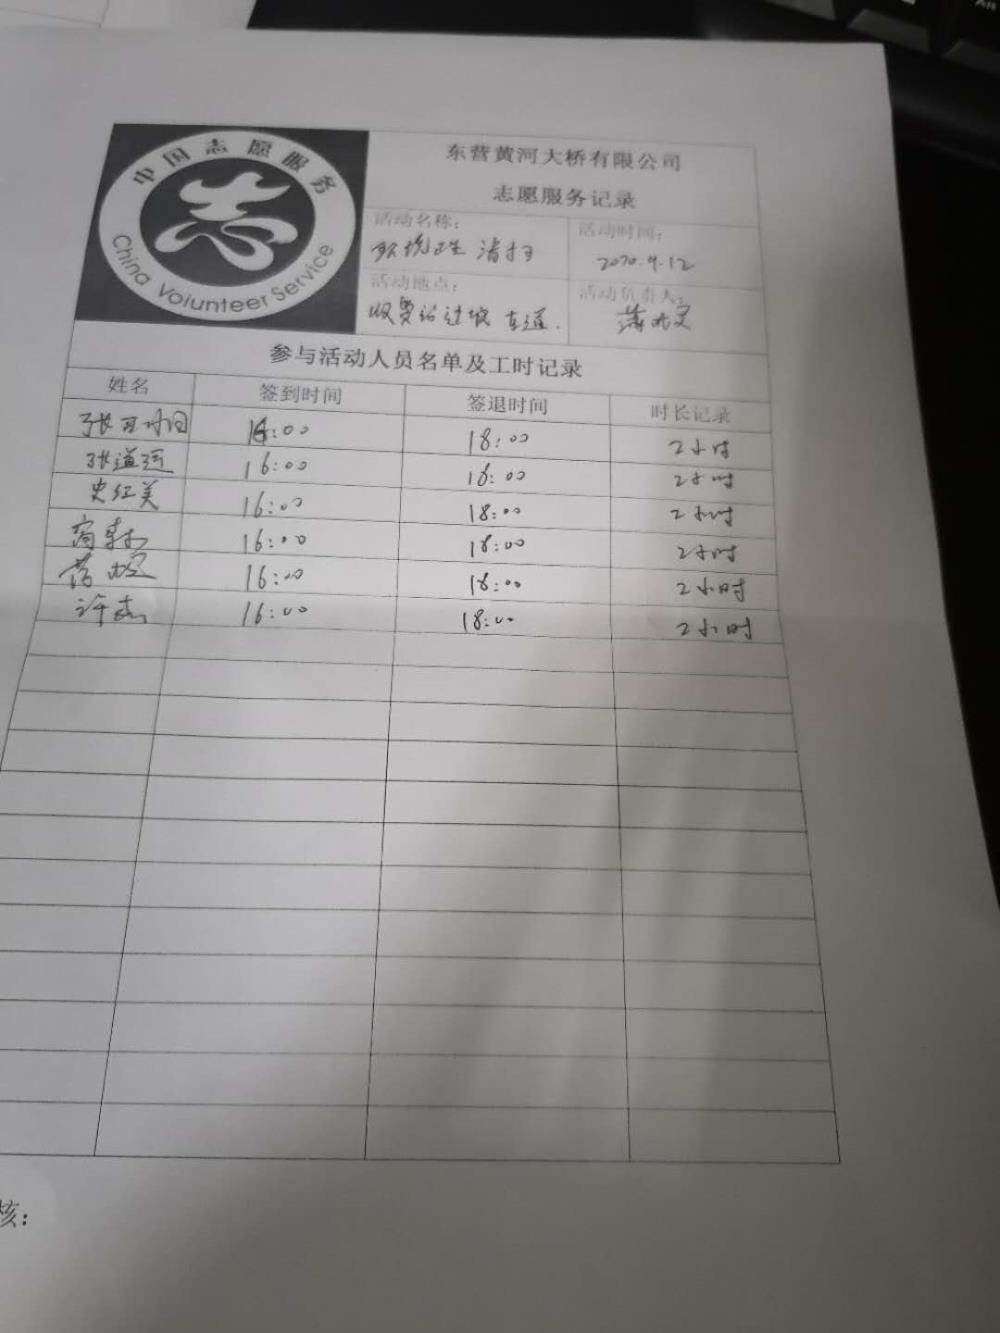 中国志愿服务
China Volunteer Service
东营黄河大桥有限公司
志愿服务记录
活动名称：
清扫
活动时间：
2020.9.12
活动地点：
收费站边坡 车道.
活动负责人：
参与活动人员名单及工时记录
姓名 签到时间 签退时间 时长记录
16:00 18:00 2小时
张道远 16:00 18:00 2小时
史红美 16:00 18:00 2小时
16:00 18:00 2小时
16:00 18:00 2小时
许杰 16:00 18:00 2小时
核：